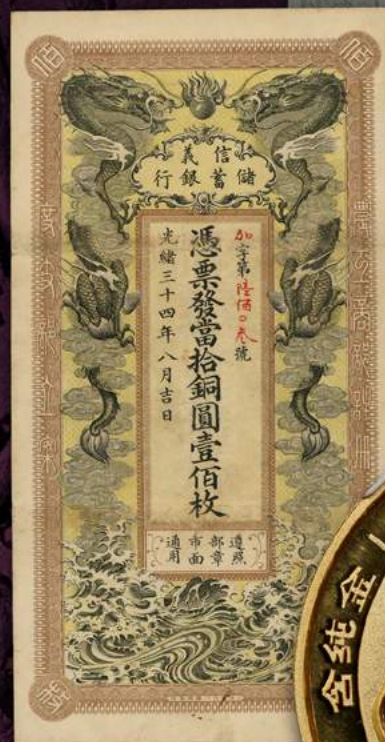 佰
佰
信義儲蓄銀行
加字第陸佰〇叁號
憑票發當拾銅圓壹佰枚
光緒三十四年八月吉日
遵照部章市面通用
農工商部註冊
度支部立案
含純金